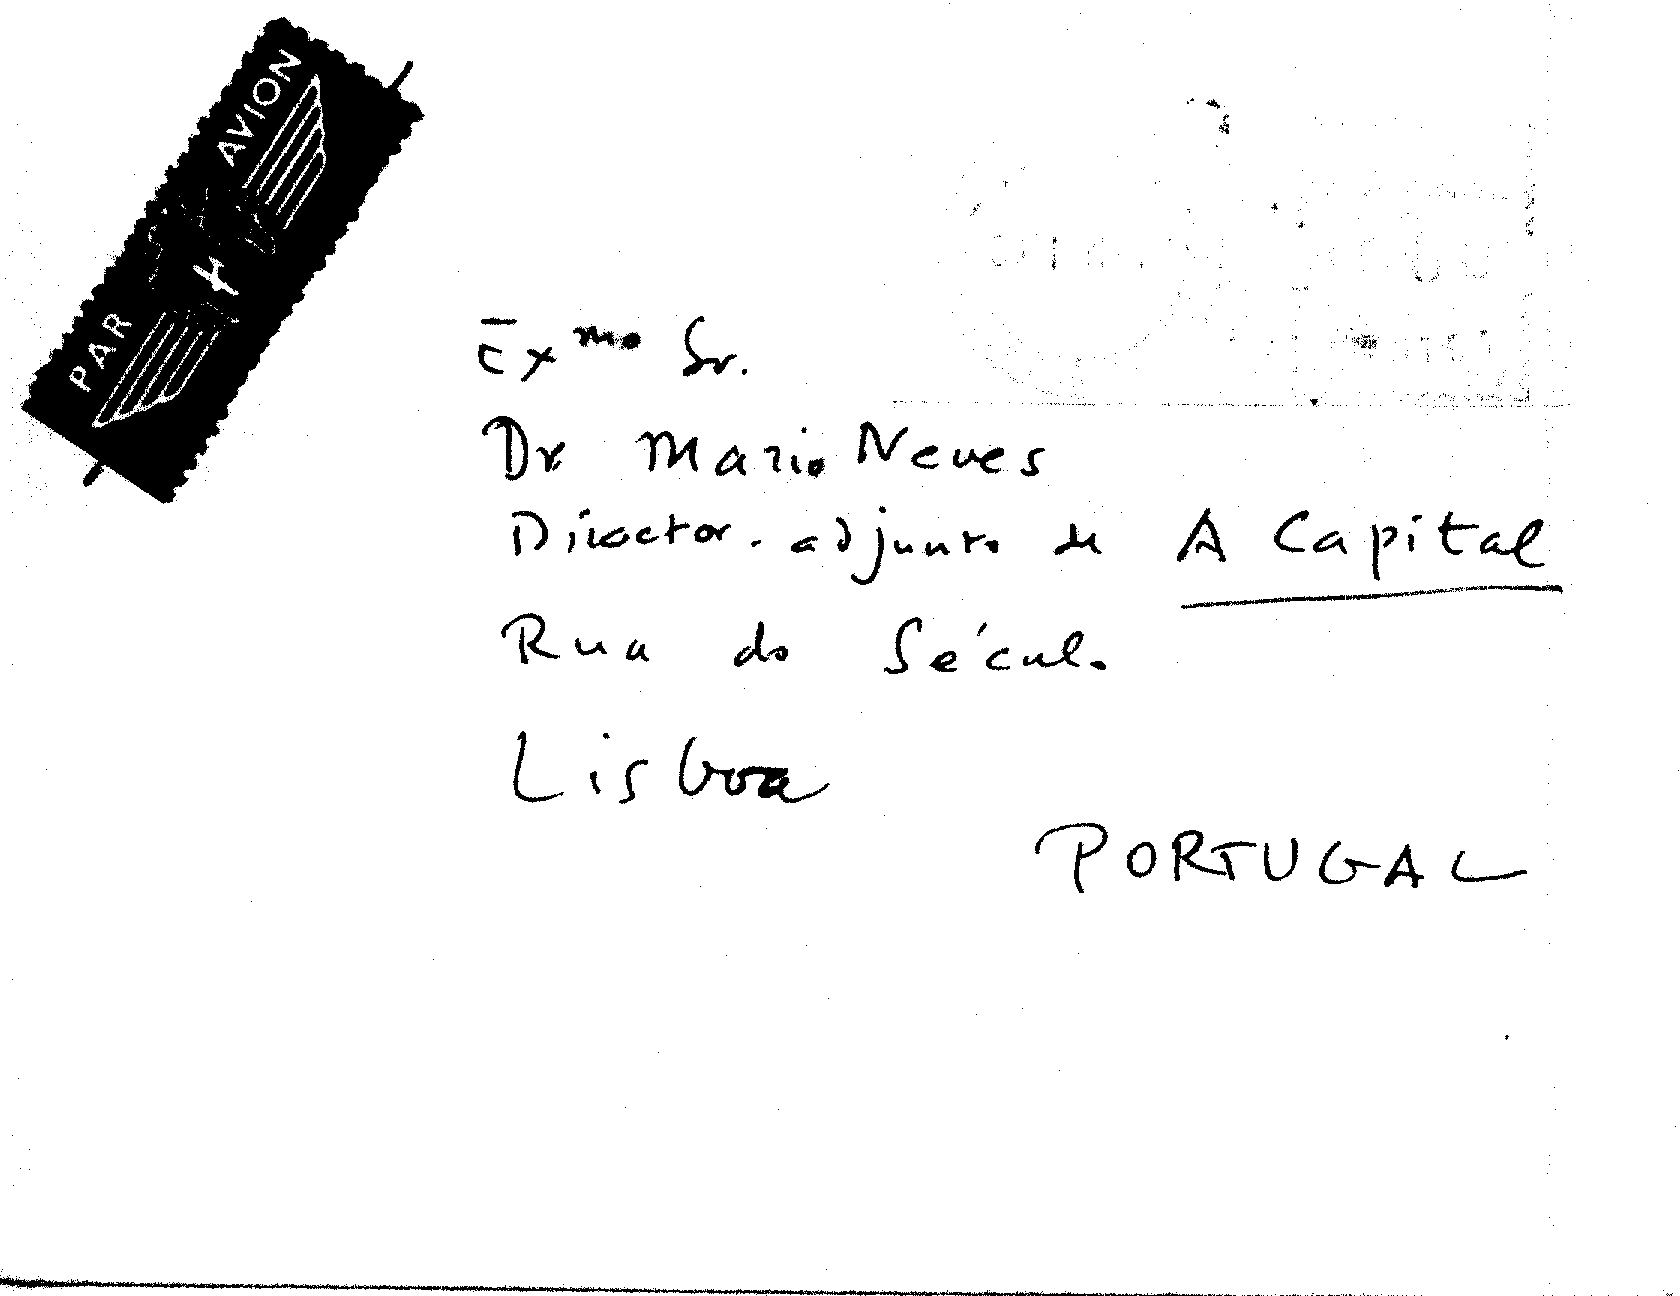 PAR AVION
Exmo Sr.
Dr Mario Neves
Director-adjunto de A Capital
Rua do Século
Lisboa
PORTUGAL